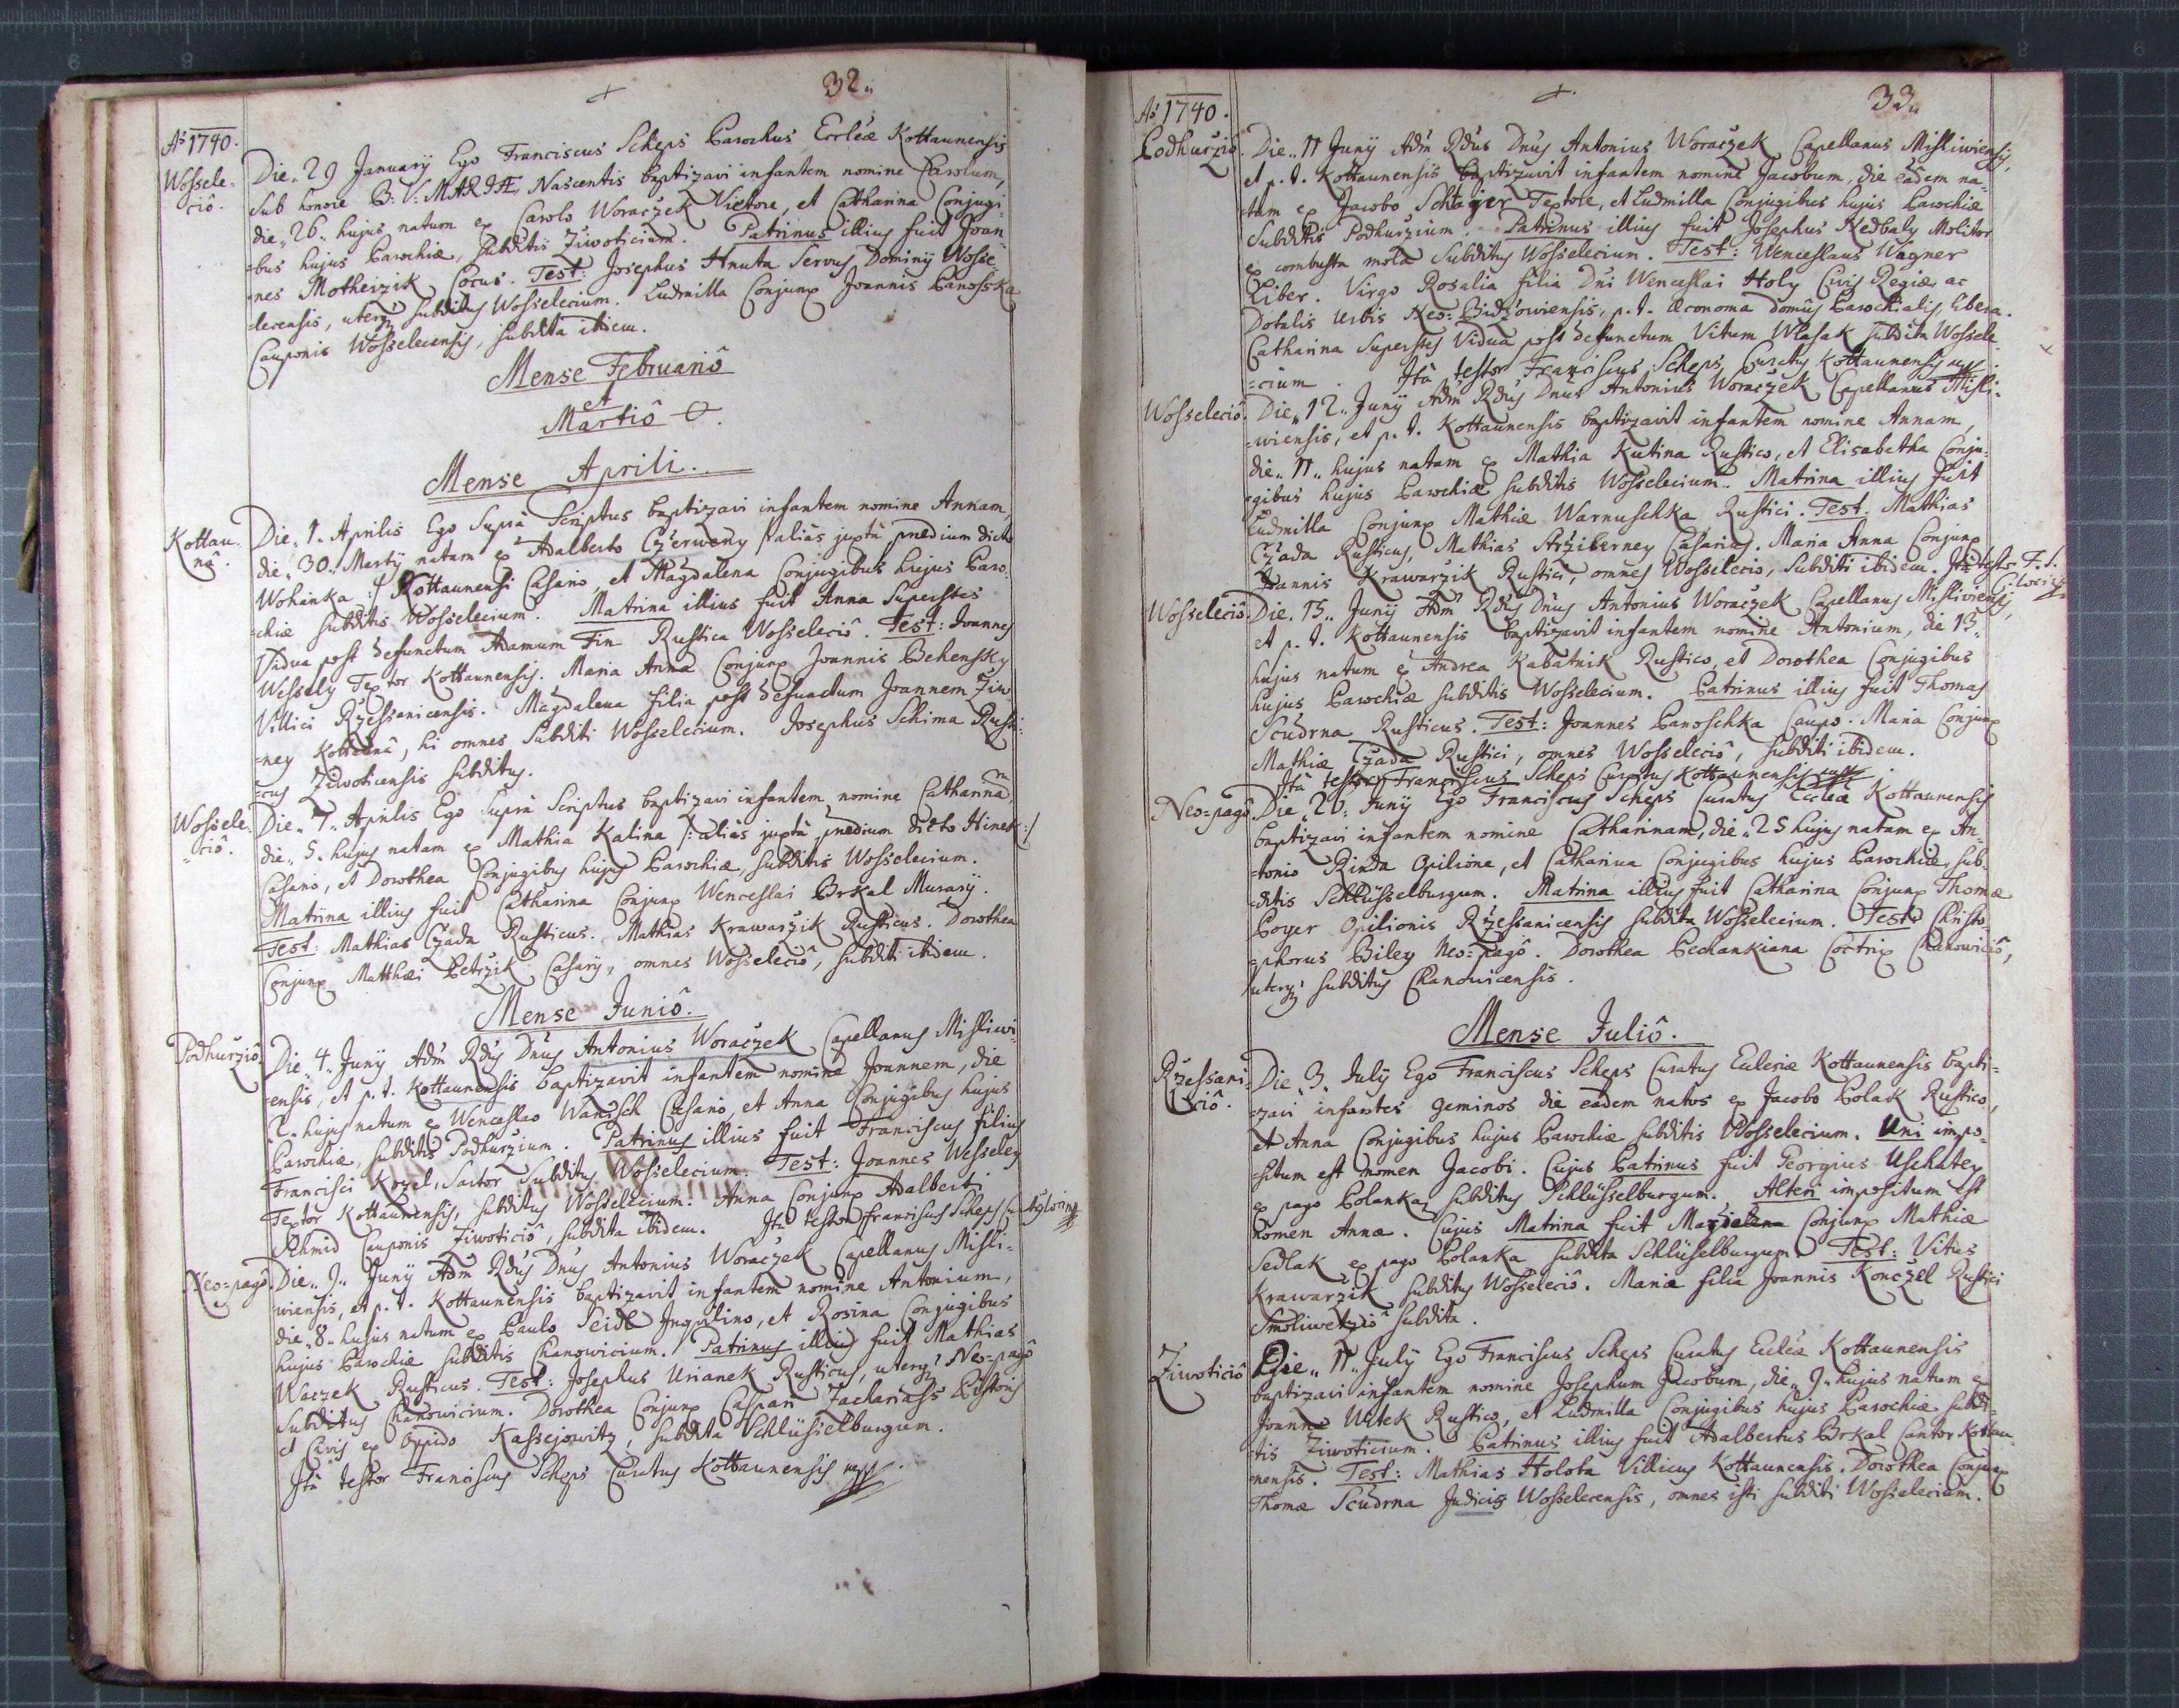 32.
Aõ 1740.
Wossele-
ciô.
Die 29 January Ego Franciscus Scheps Parochus Eccleæ Kottaunensis
Sub honore B: V: MARIÆ Nascentis baptizavi infantem nomine Carolum,
die 26 hujus natum ex Carolo Woraczek Victore, et Catharina Conjugi-
bus hujus Parochiæ, subditis Ziwoticium. Patrinus illius fuit Joan-
nes Motheizik Cocus. Test: Josephus Hnuta Servus Dominij Wosse-
lecensis, uterq subditus Wosselecium. Ludmilla Conjunx Joannis Panosska
Cauponis Wosselecensis, subdita ibidem.
Mense Februariô
et
Martiô O.
Mense Aprili.
Kottau-
nâ.
Die 1. Aprilis Ego Suprà Scriptus baptizavi infantem nomine Annam,
die 30. Martij natam ex Adalberto Czerweny /: aliàs juxtà prædium dicto
Wohanka :/ Kottaunensi Casario, et Magdalena Conjugibus hujus Paro-
chiæ subditis Wosselecium. Matrina illius fuit Anna Superstes
Vidua post defunctum Adamum Fin Rustica Wosseleciô. Test: Joannes
Wessely Textor Kottaunensis. Maria Anna Conjunx Joannis Behensky
Villici Rzessanicensis. Magdalena filia post defunctum Joannem Ziw-
ney Kottaunâ, hi omnes Subditi Wosselecium. Josephus Schima Rusti-
cus Ziwoticensis subditus.
Wossele-
ciô.
Die 7. Aprilis Ego Suprà Scriptus baptizavi infantem nomine Catharinam,
die 5. hujus natam ex Mathia Kalina /: aliàs juxtà prædium dicto Hinek :/
Casario, et Dorothea Conjugibus hujus Parochiæ, subditis Wosselecium.
Matrina illius fuit Catharina Conjunx Wenceslai Brkal Murarij.
Test: Mathias Czada Rusticus. Mathias Krawarzik Rusticus. Dorothea
Conjunx Matthæi Petrzik Casarij, omnes Wosseleciô, subditi ibidem.
Mense Juniô.
Podhurziô
Die 4. Junij Adm Rdus Dnus Antonius Woraczek Capellanus Misliwi-
ensis, et p. t. Kottaunensis baptizavit infantem nomine Joannem, die
2. hujus natum ex Wenceslao Wanisch Casario, et Anna Conjugibus hujus
Parochiæ, subditis Podhurzium. Patrinus illius fuit Franciscus filius
Francisci Kozel, Sartor Subditus Wosselecium. Test: Joannes Wesseley
Textor Kottaunensis, subditus Wosselecium. Anna Conjunx Adalberti
Schmid Cauponis Ziwoticiô, subdita ibidem. Ità testor Franciscus Scheps
Neo-pagô.
Die 9. Junij Adm Rdus Dnus Antonius Woraczek Capellanus Misli-
wiensis, et p. t. Kottaunensis baptizavit infantem nomine Antonium,
die 8. hujus natum ex Paulo Seidl Inquilino, et Rosina Conjugibus
hujus Parochiæ subditis Chanowicium. Patrinus illius fuit Mathias
Waczek Rusticus. Test: Josephus Urianek Rusticus, uterq Neo-pagô
Subditus Chanowicium. Dorothea Conjunx Caspari Zachariass Pistoris
et Civis ex Oppido Kassejowitz, subdita Schlüsselburgum.
Ità testor Franciscus Scheps Curatus Kottaunensis mpp
33.
Aõ 1740.
Podhurziô.
Die 11 Junij Adm Rdus Dnus Antonius Woraczek Capellanus Misliwiensis,
et p. t. Kottaunensis baptizavit infantem nomine Jacobum, die eâdem na-
tum ex Jacobo Schtajger Textore, et Ludmilla Conjugibus hujus Parochiæ
Subditis Podhurzium. Patrinus illius fuit Josephus Nedbaly Molitor
ex combusta mola Subditus Wosselecium. Test: Wenceslaus Wagner
Liber. Virgo Rosalia filia Dni Wenceslai Holy Civis Regiæ ac
Dotalis Urbis Neo-Bidżowiensis, p. t. Œconoma domûs Parochialis, libera.
Catharina Superstes Vidua post defunctum Vitum Wlasak subdita Wossele-
cium. Ità testor Franciscus Scheps Curatus Kottaunensis mpp
Wosseleciô.
Die 12. Junij Adm Rdus Dnus Antonius Woraczek Capellanus Misli-
wiensis, et p. t. Kottaunensis baptizavit infantem nomine Annam,
die 11. hujus natam ex Mathia Kutina Rustico, et Elisabetha Conju-
gibus hujus Parochiæ subditis Wosselecium. Matrina illius fuit
Ludmilla Conjunx Mathiæ Warnuschka Rustici. Test: Mathias
Czada Rusticus, Mathias Casarius. Maria Anna Conjunx
Joannis Krawarzik Rustici, omnes Wosseleciô, Subditi ibidem. Ità testor F. S.
Wosseleciô.
Die 15. Junij Adm Rdus Dnus Antonius Woraczek Capellanus Misliwiensis,
et p. t. Kottaunensis baptizavit infantem nomine Antonium, die 13.
hujus natum ex Andrea Kabatnik Rustico, et Dorothea Conjugibus
hujus Parochiæ subditis Wosselecium. Patrinus illius fuit Thomas
Scudrna Rusticus. Test: Joannes Panoschka Caupo. Maria Conjunx
Mathiæ Czada Rustici, omnes Wosseleciô, subditi ibidem.
Ità testor Franciscus Scheps Curatus Kottaunensis mpp
Neo-pagô.
Die 26. Junij Ego Franciscus Scheps Curatus Eccleæ Kottaunensis
baptizavi infantem nomine Catharinam, die 25 hujus natam ex An-
tonio Rinda Opilione, et Catharina Conjugibus hujus Parochiæ, sub-
ditis Schlüsselburgum. Matrina illius fuit Catharina Conjunx Thomæ
Poyer Opilionis Rzessanicensis subdita Wosselecium. Test: Christo-
phorus Biley Neo-pagô. Dorothea Pechankiana Coctrix Chanowiciô,
uterq subditus Chanowicensis.
Mense Juliô.
Rzessani-
ciô.
Die 3. July Ego Franciscus Scheps Curatus Eclesiæ Kottaunensis bapti-
zavi infantes geminos die eâdem natos ex Jacobo Polak Rustico,
et Anna Conjugibus hujus Parochiæ subditis Wosselecium. Uni impo-
situm est nomen Jacobi. Cujus Patrinus fuit Georgius Uschatey
ex pago Polanka, subditus Schlüsselburgum. Alteri impositum est
nomen Annæ. Cujus Matrina fuit Magdalena Conjunx Mathiæ
Sedlak ex pago Polanka subdita Schlüsselburgum. Test: Vitus
Krawarzik subditus Wosseleciô. Maria filia Joannis Konczel Rustici
Smoliwetziô subdita.
Ziwoticiô
Die 11. July Ego Franciscus Scheps Curatus Eccleæ Kottaunensis
baptizavi infantem nomine Josephum Jacobum, die 9. hujus natum ex
Joanne Witek Rustico, et Ludmilla Conjugibus hujus Parochiæ subdi-
tis Ziwoticium. Patrinus illius fuit Adalbertus Brkal Cantor Kottau-
nensis. Test: Mathias Holota Villicus Kottaunensis. Dorothea Conjunx
Thomæ Scudrna Judicis Wosselecensis, omnes isti subditi Wosselecium.